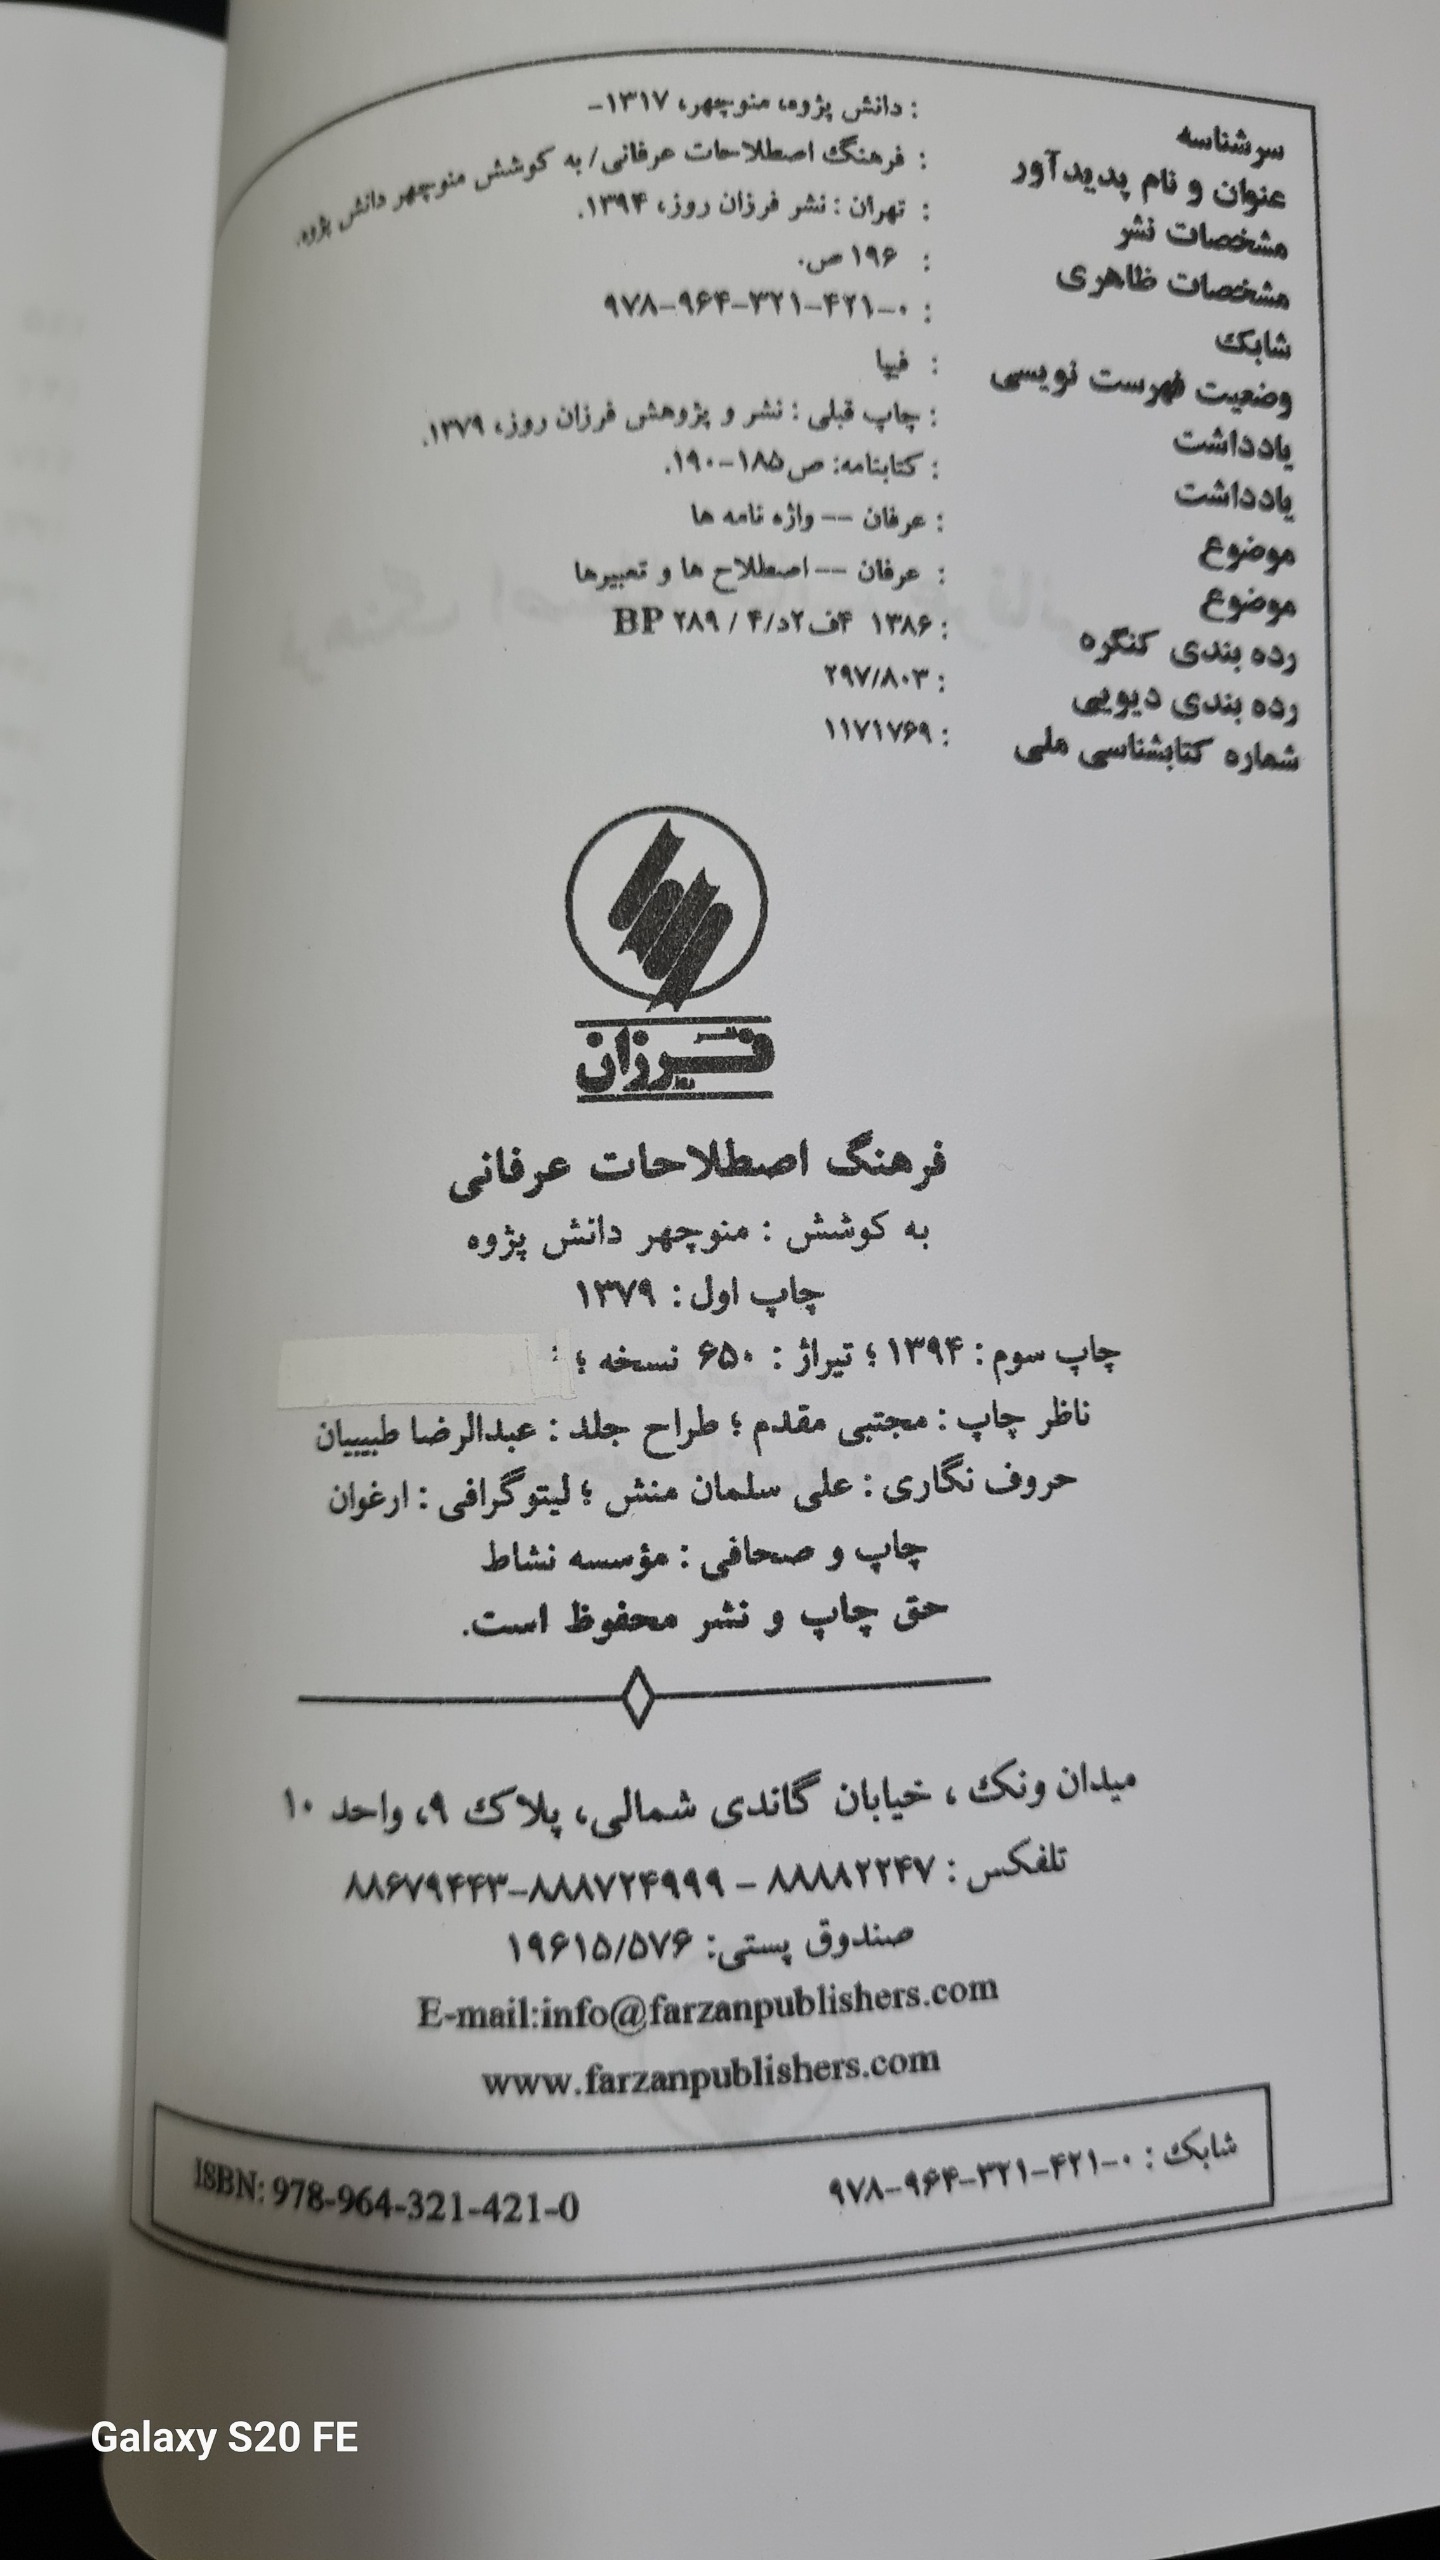 سرشناسه : دانش پژوه، منوچهر، ۱۳۱۷-
عنوان و نام پدیدآور : فرهنگ اصطلاحات عرفانی/ به کوشش منوچهر دانش پژوه.
مشخصات نشر : تهران : نشر فرزان روز، ۱۳۹۴.
مشخصات ظاهری : ۱۹۶ ص.
شابک : ۹۷۸-۹۶۴-۳۲۱-۴۲۱-۰
وضعیت فهرست نویسی : فیپا
یادداشت : چاپ قبلی : نشر و پژوهش فرزان روز، ۱۳۷۹.
یادداشت : کتابنامه: ص ۱۸۵-۱۹۰.
موضوع : عرفان -- واژه نامه ها
موضوع : عرفان -- اصطلاح ها و تعبیرها
رده بندی کنگره : ۱۳۸۶ ۴ف۲د/۴ / ۲۸۹ BP
رده بندی دیویی : ۲۹۷/۸۰۳
شماره کتابشناسی ملی : ۱۱۷۱۷۶۹
فرزان
روز
فرهنگ اصطلاحات عرفانی
به کوشش : منوچهر دانش پژوه
چاپ اول : ۱۳۷۹
چاپ سوم : ۱۳۹۴ ؛ تیراژ : ۶۵۰ نسخه ؛
ناظر چاپ : مجتبی مقدم ؛ طراح جلد : عبدالرضا طبیبیان
حروف نگاری : علی سلمان منش ؛ لیتوگرافی : ارغوان
چاپ و صحافی : مؤسسه نشاط
حق چاپ و نشر محفوظ است.
میدان ونک ، خیابان گاندی شمالی، پلاک ۹، واحد ۱۰
تلفکس : ۸۸۸۸۲۲۴۷ - ۸۸۸۷۲۴۹۹۹-۸۸۶۷۹۴۴۳
صندوق پستی: ۱۹۶۱۵/۵۷۶
E-mail:info@farzanpublishers.com
www.farzanpublishers.com
شابک : ۹۷۸-۹۶۴-۳۲۱-۴۲۱-۰ ISBN: 978-964-321-421-0
Galaxy S20 FE